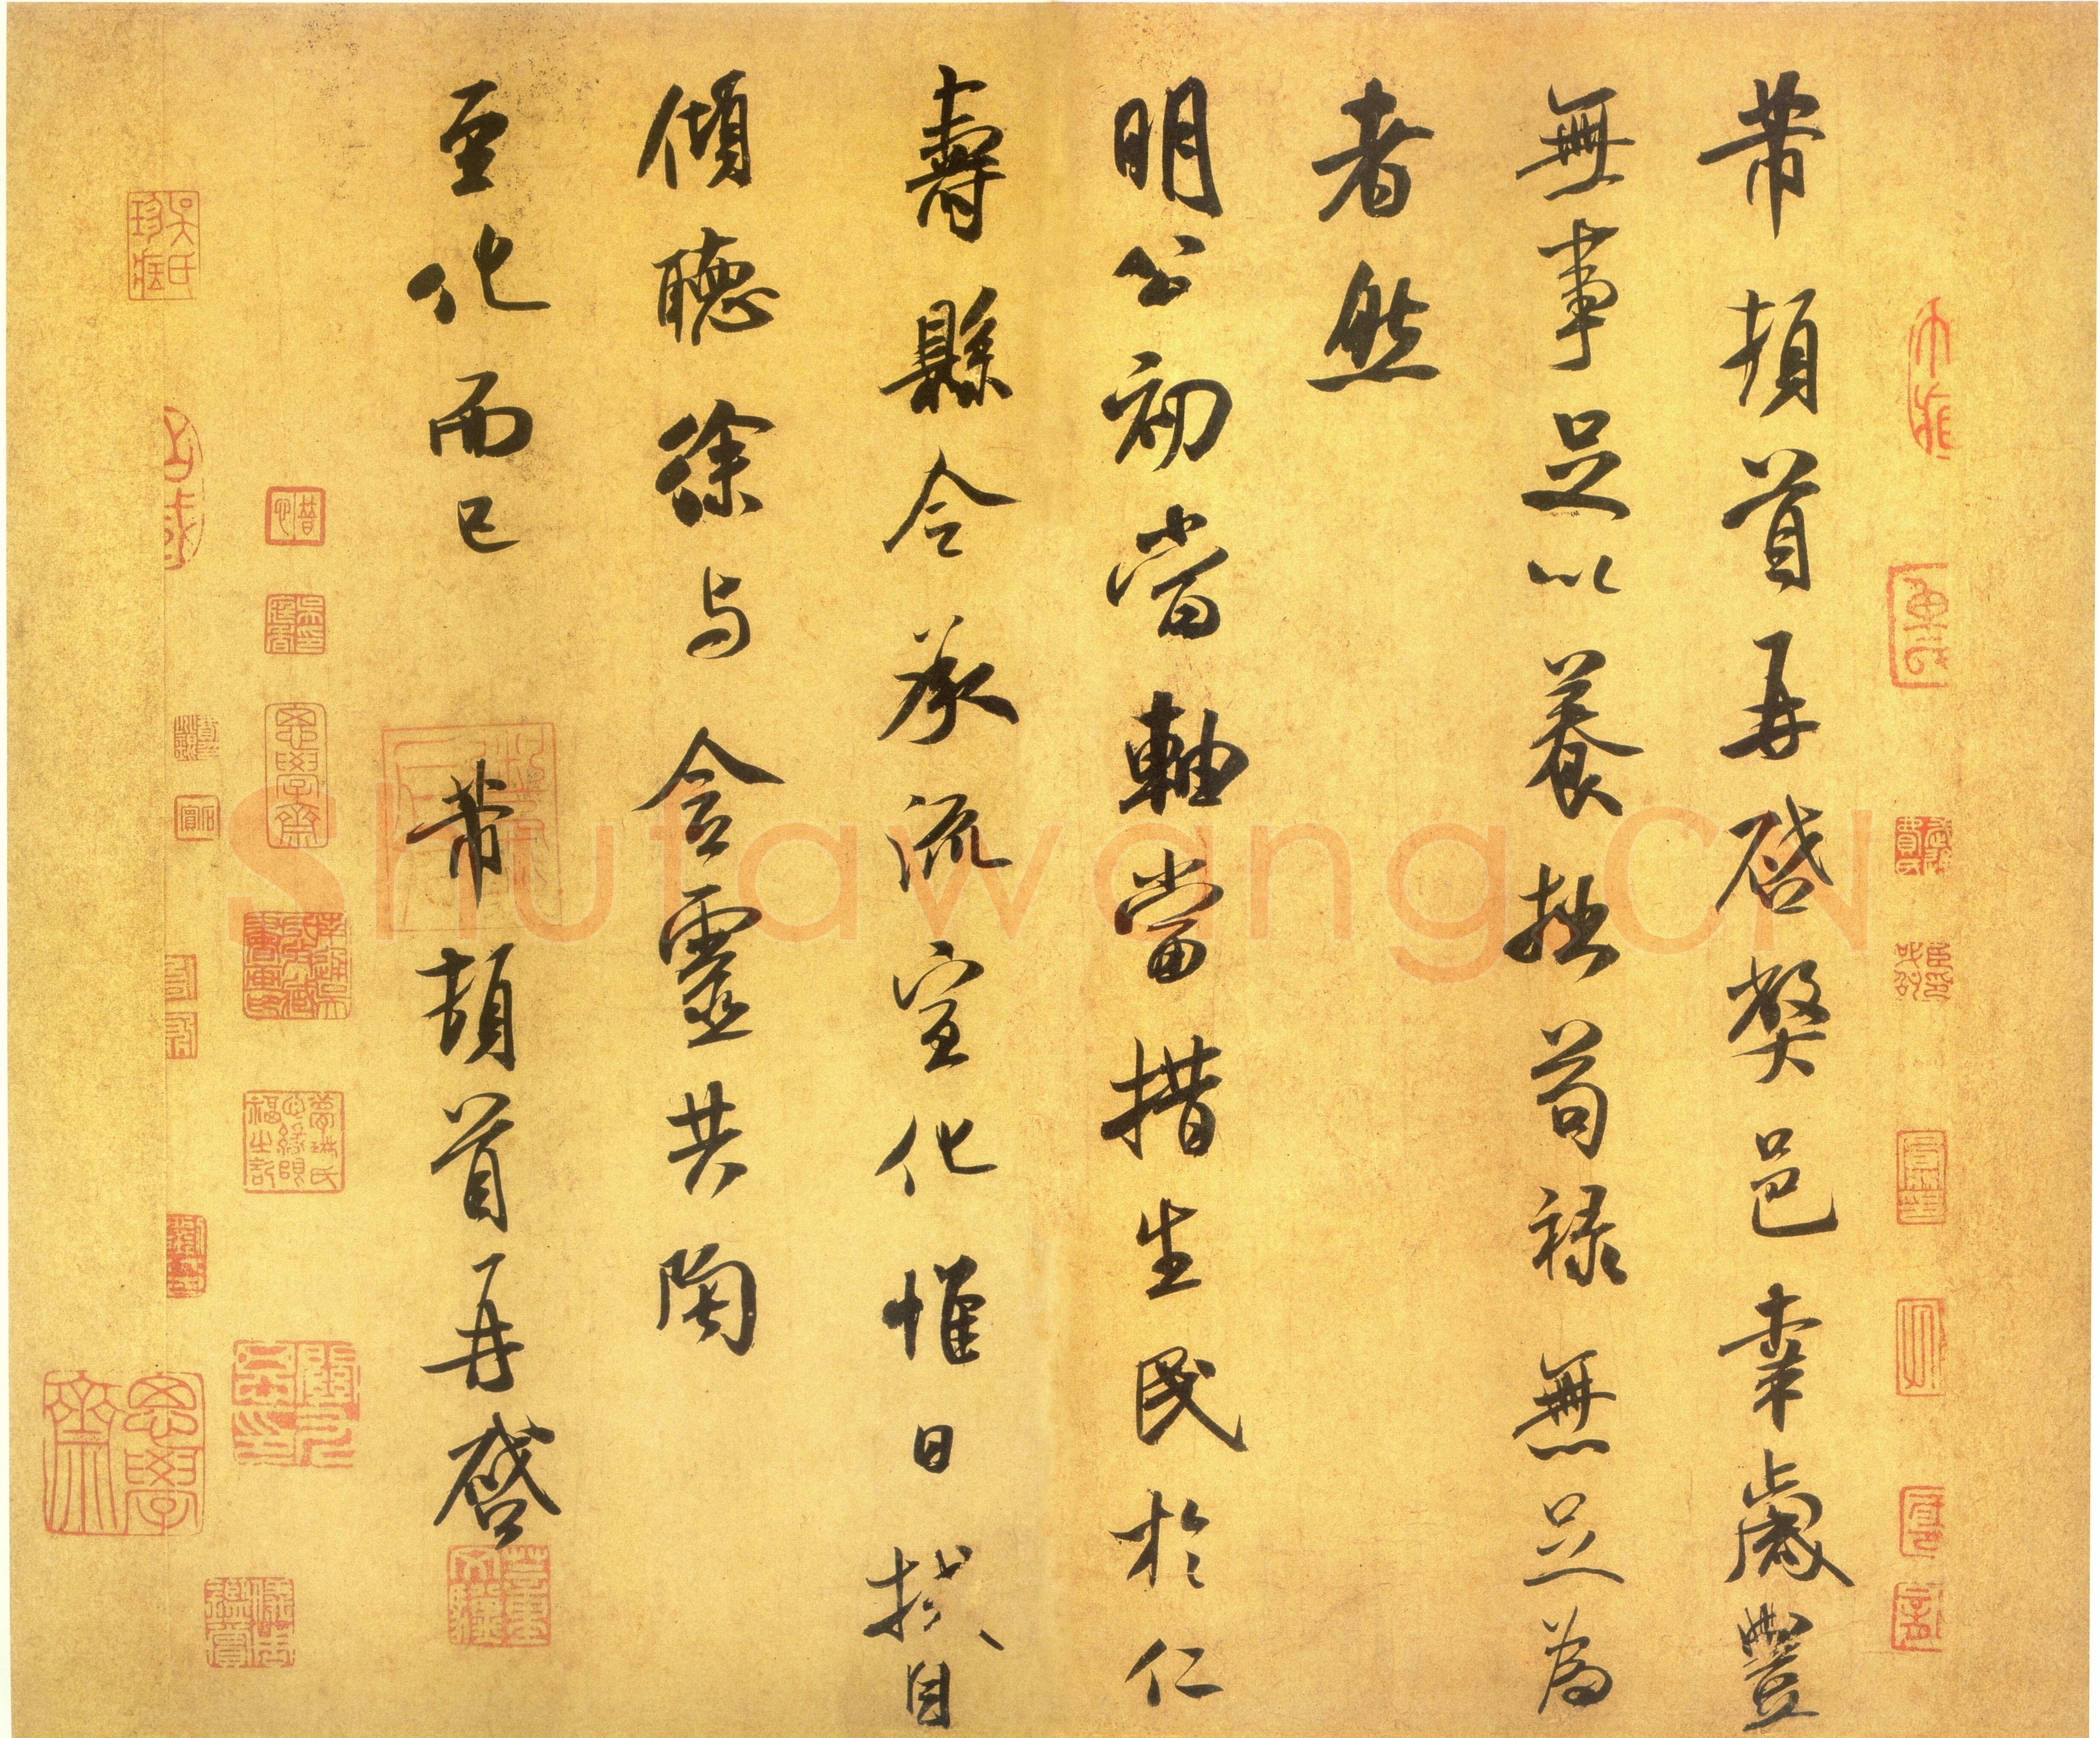 芾頓首再啓弊邑幸歲豐
無事足以養拙苟祿無足為
者然
明公初當軸當措生民於仁
壽縣令承流宣化惟日拭目
傾聽徐与含靈共陶
至化而已 芾頓首再啓
吳氏珍藏
思學齋
Shufawang.CN